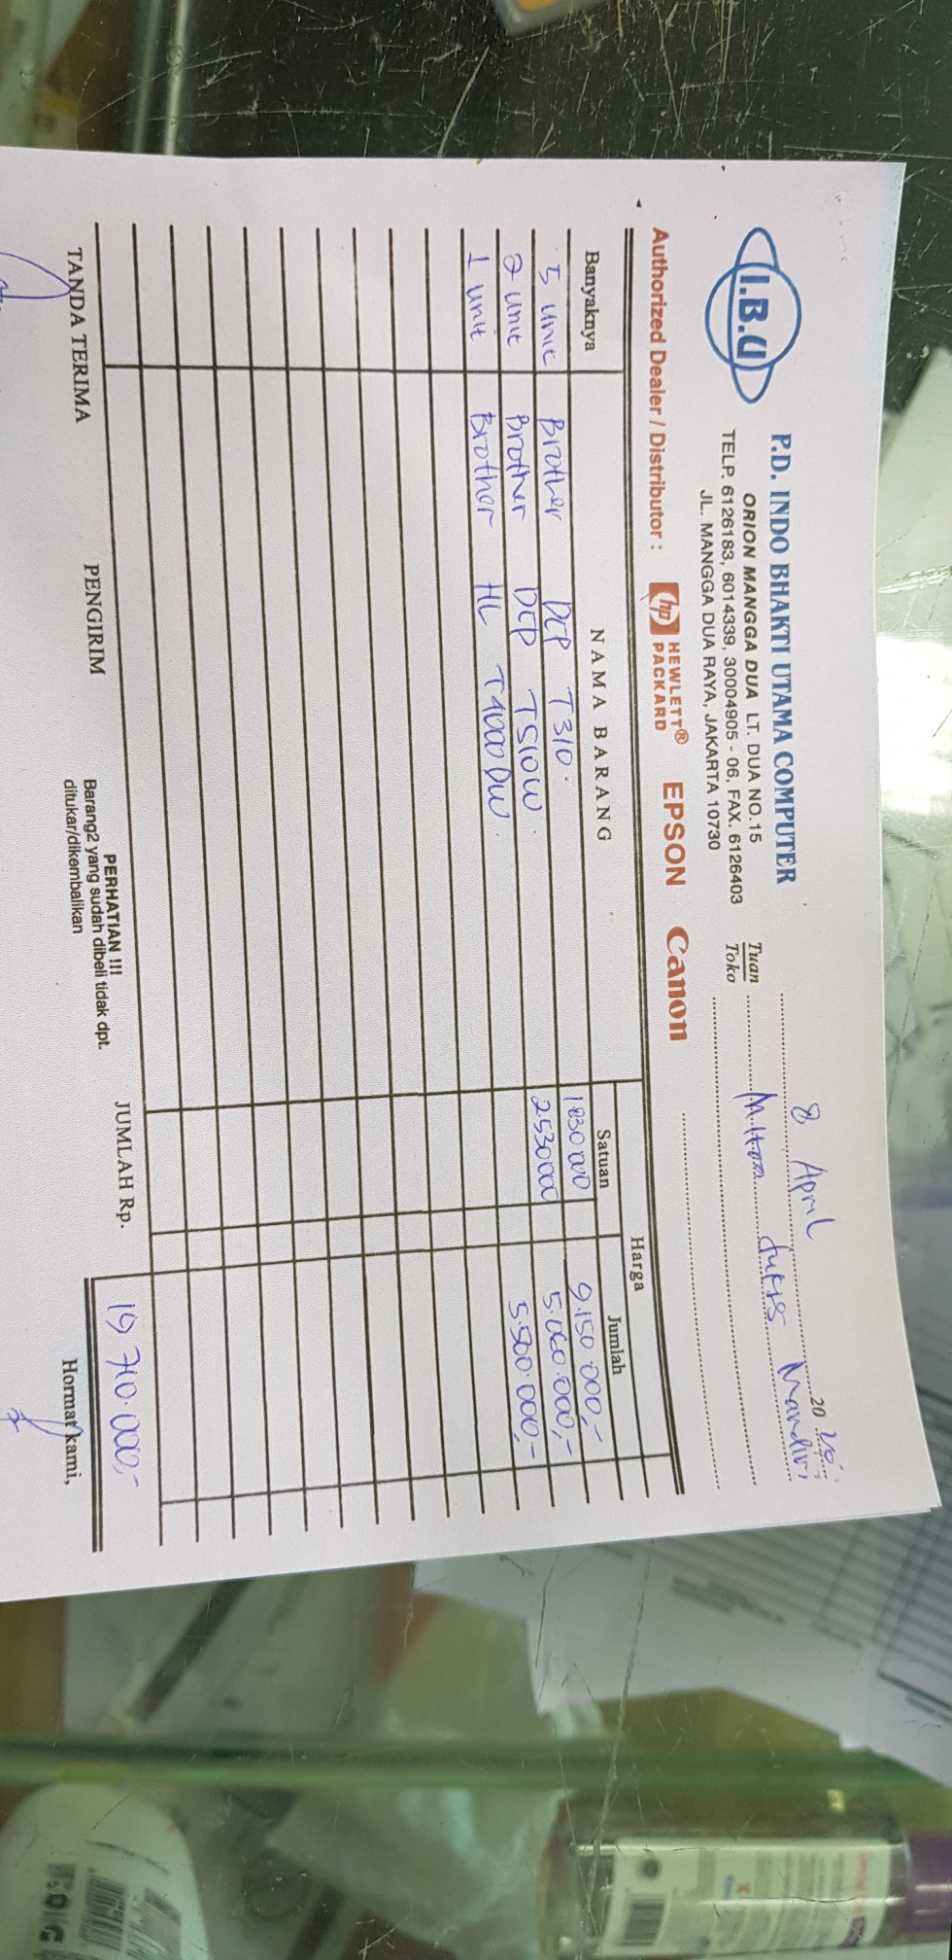 I.B.U
P.D. INDO BHAKTI UTAMA COMPUTER
ORION MANGGA DUA LT. DUA NO.15
TELP. 6126183, 6014339, 30004905 - 06, FAX. 6126403
JL. MANGGA DUA RAYA, JAKARTA 10730
8 April 20 20
Tuan
Toko
Mandiri
Authorized Dealer / Distributor : hp HEWLETT® PACKARD EPSON Canon
Banyaknya NAMA BARANG Harga
Satuan Jumlah
5 unit Brother DCP T310. 1830000 9.150.000,-
2 unit Brother DCP T510W. 2530000 5.060.000,-
1 unit Brother HL T4000DW. 5.500.000,-
JUMLAH Rp. 19.710.000,-
TANDA TERIMA PENGIRIM
PERHATIAN !!!
Barang2 yang sudah dibeli tidak dpt.
ditukar/dikembalikan
Hormat kami,